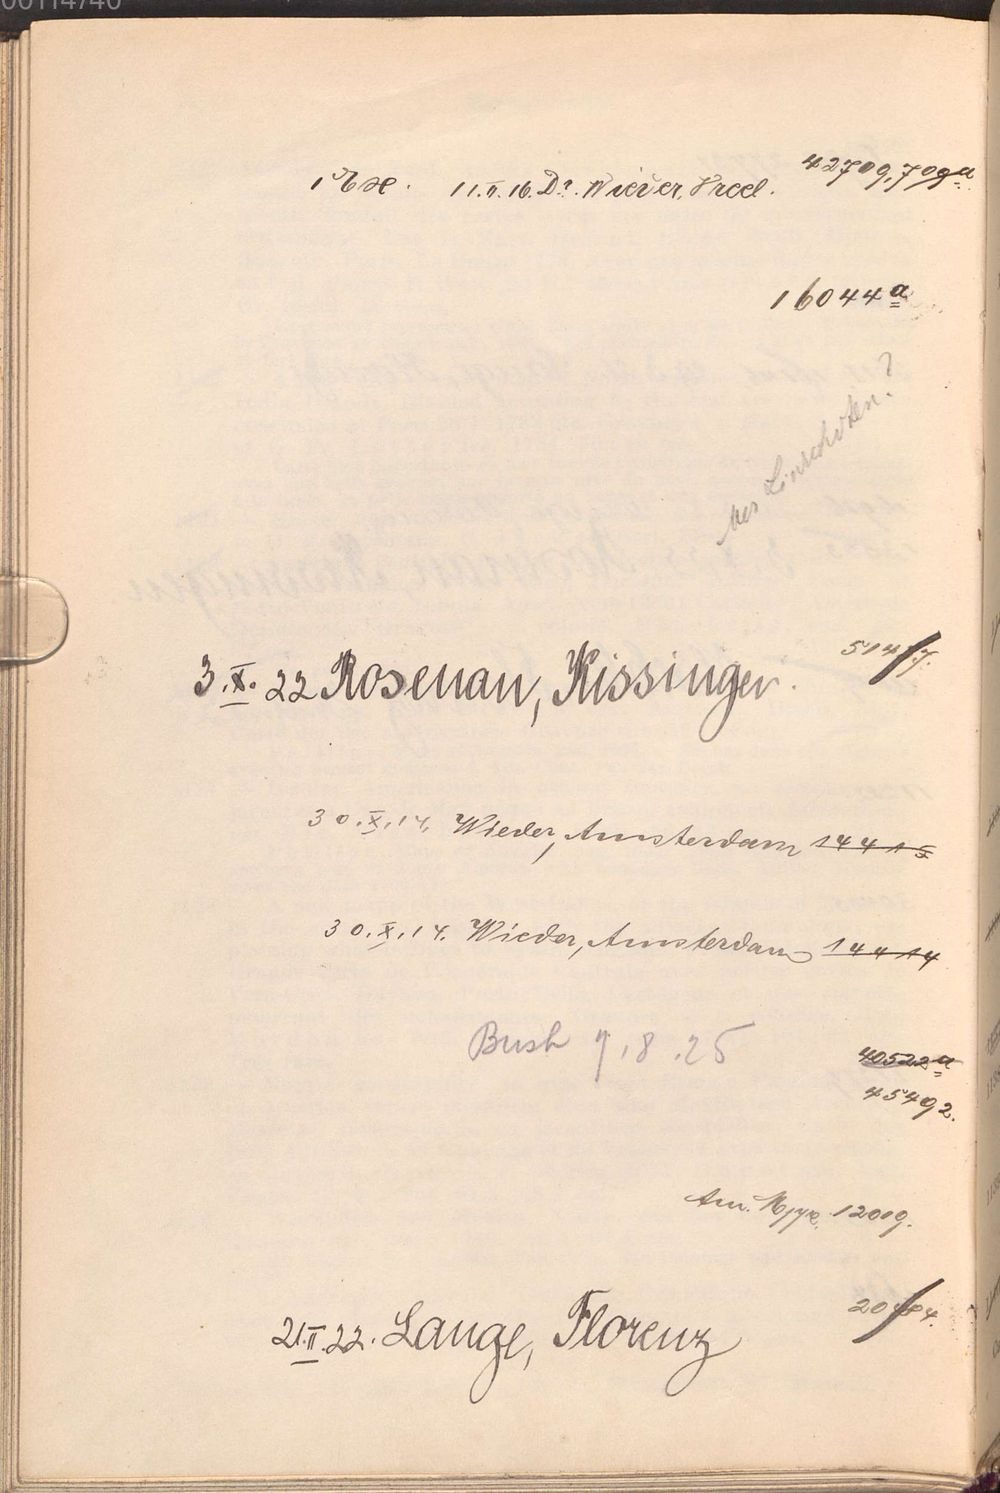 00114740
1 Ex. 11.II.16. Dr. Wieder, 42709, 709a
16044a
bis Linschoten?
3.X.22 Rosenau, Kissingen. 51417.
30.X.14. Wieder, Amsterdam 14415
30.X.14. Wieder, Amsterdam 14414
Bush 7.8.25
40522a
45492.
Am. 12019.
21.II.22. Lange, Florenz 20484.